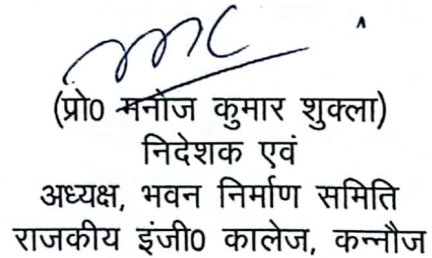 (प्रो0 मनोज कुमार शुक्ला)
निदेशक एवं
अध्यक्ष, भवन निर्माण समिति
राजकीय इंजी0 कालेज, कन्नौज